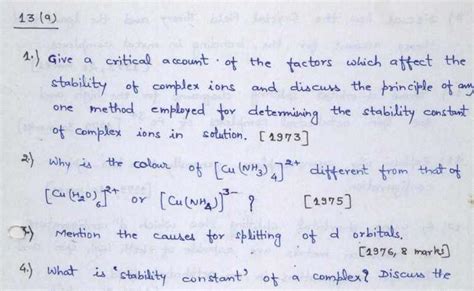 13 (a)
1.) Give a critical account of the factors which affect the
stability of complex ions and discuss the principle of any
one method employed for determining the stability constant
of complex ions in solution. [1973]
2) Why is the colour of [Cu(NH3)4]2+ different from that of
[Cu(H2O)6]2+ or [Cu(NH2)]3- ? [1975]
3) Mention the causes for splitting of d orbitals.
[1976, 8 marks]
4.) What is 'stability constant' of a complex? Discuss the